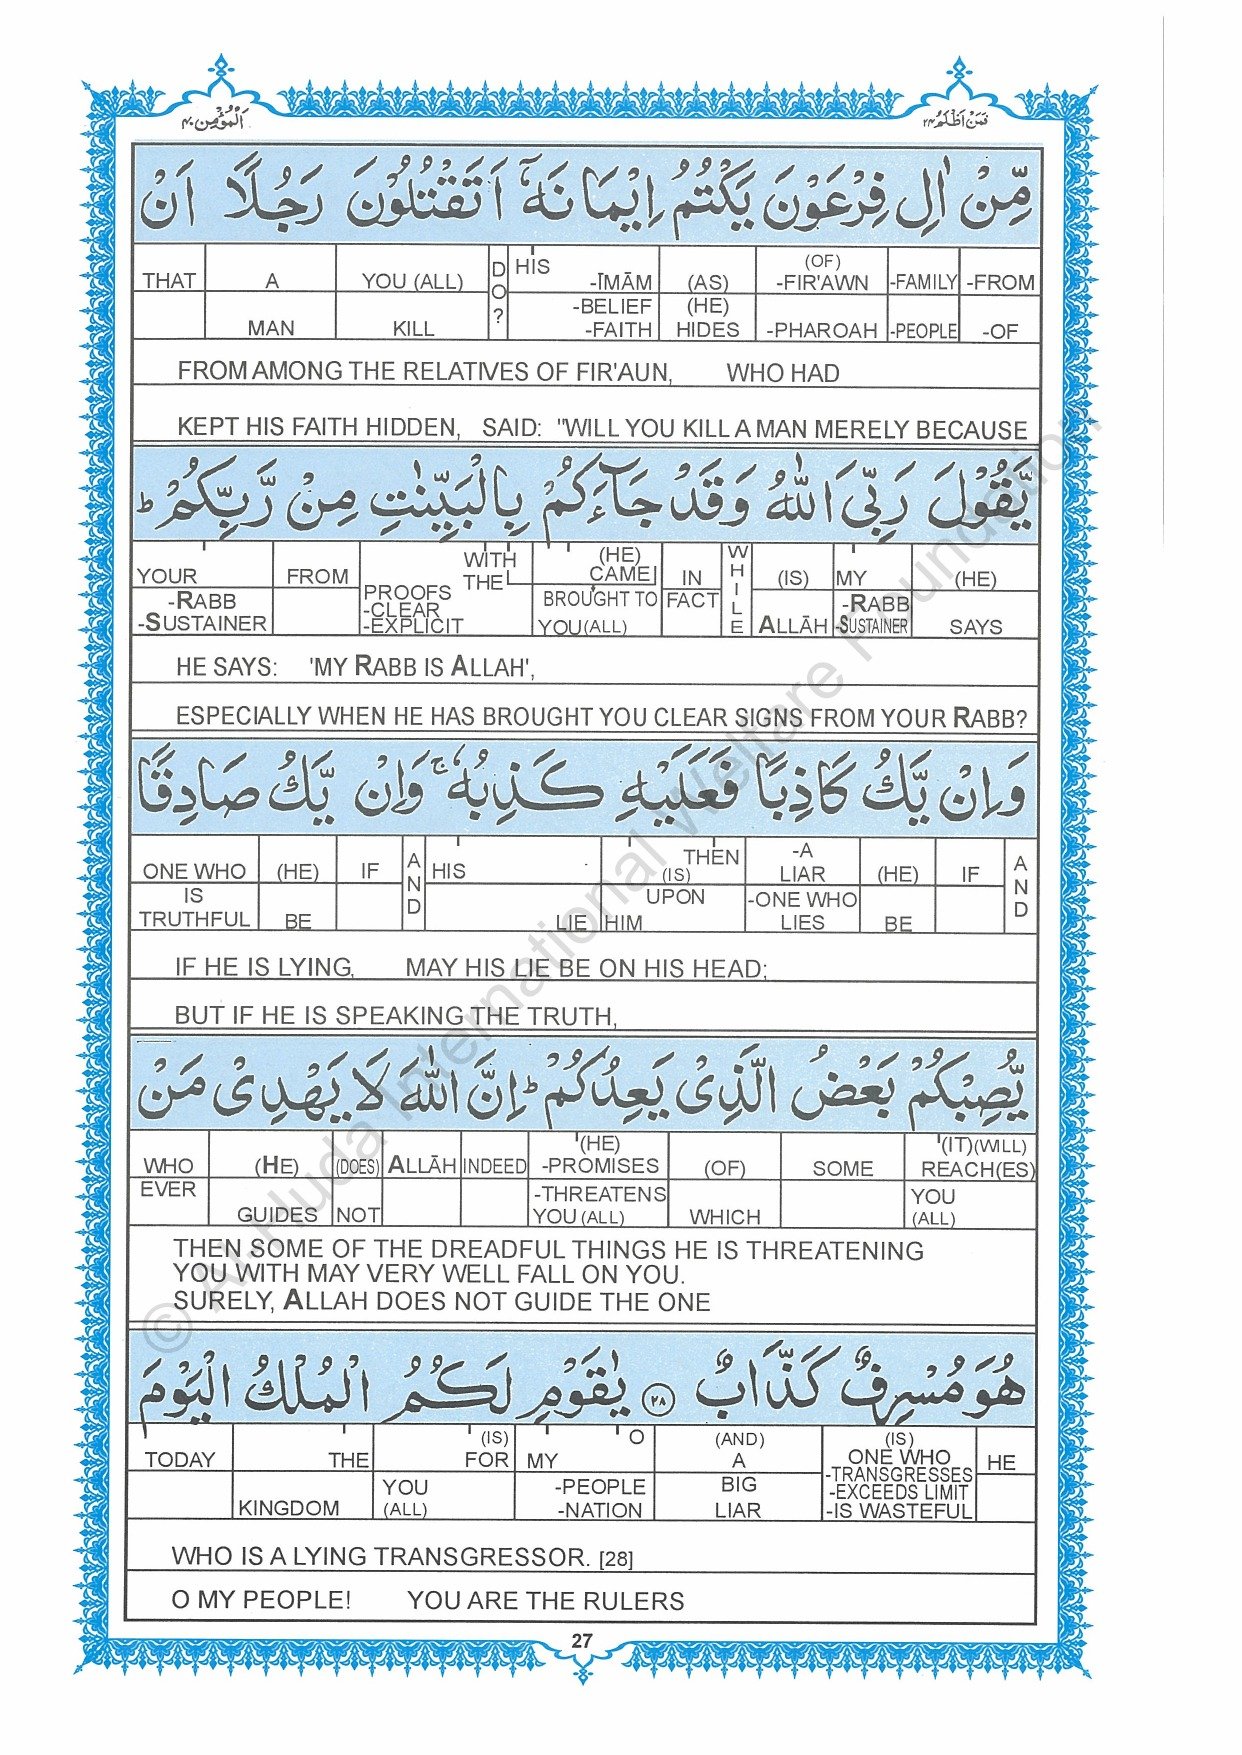 اَلْمُؤْمِن ٤٠
فَمَنْ اَظْلَمُ ٢٤
مِّنْ اٰلِ فِرْعَوْنَ يَكْتُمُ اِيْمَانَهٗۤ اَتَقْتُلُوْنَ رَجُلًا اَنْ
THAT A YOU (ALL) DO? HIS -ĪMĀM (AS) (OF) -FIR'AWN -FAMILY -FROM
MAN KILL -BELIEF -FAITH (HE) HIDES -PHAROAH -PEOPLE -OF
FROM AMONG THE RELATIVES OF FIR'AUN, WHO HAD
KEPT HIS FAITH HIDDEN, SAID: "WILL YOU KILL A MAN MERELY BECAUSE
يَّقُوْلَ رَبِّيَ اللّٰهُ وَقَدْ جَآءَكُمْ بِالْبَيِّنٰتِ مِنْ رَّبِّكُمْ ؕ
YOUR FROM WITH THE (HE) CAME IN WHILE (IS) MY (HE)
-RABB -SUSTAINER PROOFS -CLEAR -EXPLICIT BROUGHT TO YOU (ALL) FACT ALLĀH -RABB -SUSTAINER SAYS
HE SAYS: 'MY RABB IS ALLAH',
ESPECIALLY WHEN HE HAS BROUGHT YOU CLEAR SIGNS FROM YOUR RABB?
وَاِنْ يَّكُ كَاذِبًا فَعَلَيْهِ كَذِبُهٗ ۚ وَاِنْ يَّكُ صَادِقًا
ONE WHO (HE) IF AND HIS THEN (IS) -A LIAR (HE) IF AND
IS TRUTHFUL BE LIE UPON HIM -ONE WHO LIES BE
IF HE IS LYING, MAY HIS LIE BE ON HIS HEAD;
BUT IF HE IS SPEAKING THE TRUTH,
يُّصِبْكُمْ بَعْضُ الَّذِيْ يَعِدُكُمْ ؕ اِنَّ اللّٰهَ لَا يَهْدِيْ مَنْ
WHO (HE) (DOES) ALLĀH INDEED (HE) -PROMISES (OF) SOME (IT)(WILL) REACH(ES)
EVER GUIDES NOT -THREATENS YOU (ALL) WHICH YOU (ALL)
THEN SOME OF THE DREADFUL THINGS HE IS THREATENING
YOU WITH MAY VERY WELL FALL ON YOU.
SURELY, ALLAH DOES NOT GUIDE THE ONE
هُوَ مُسْرِفٌ كَذَّابٌ ۝٢٨ يٰقَوْمِ لَكُمُ الْمُلْكُ الْيَوْمَ
TODAY THE (IS) FOR MY O (AND) A (IS) ONE WHO HE
KINGDOM YOU (ALL) -PEOPLE -NATION BIG LIAR -TRANSGRESSES -EXCEEDS LIMIT -IS WASTEFUL
WHO IS A LYING TRANSGRESSOR. [28]
O MY PEOPLE! YOU ARE THE RULERS
27
© Al-Huda International Welfare Foundation